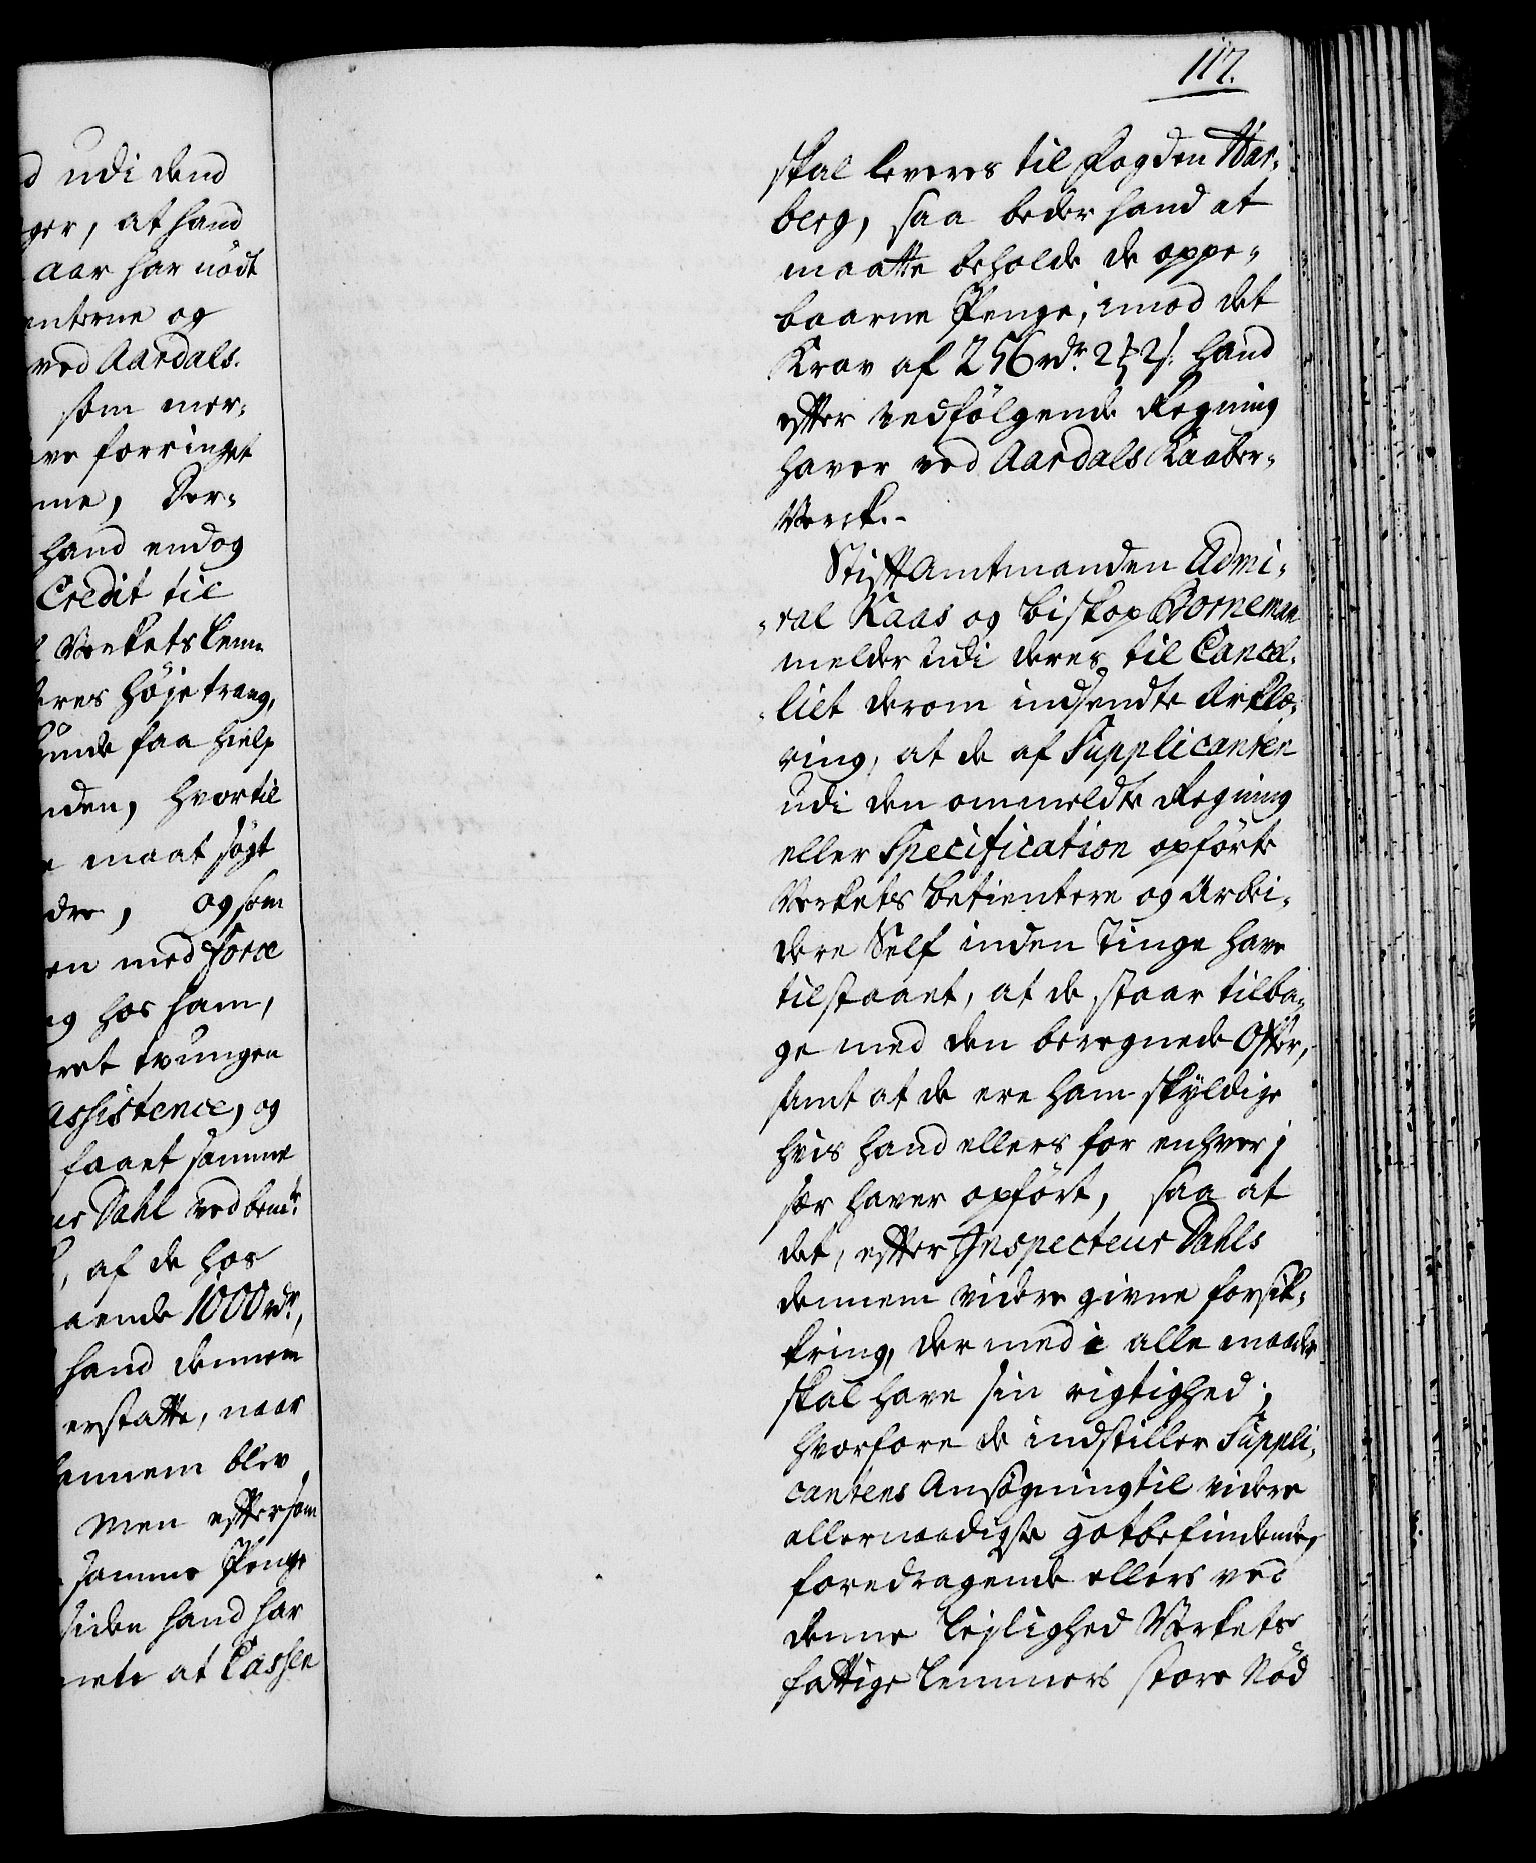 d udi dend
ger, at hand
aar har nødt
enterne og
ved Aardals-
som mer-
ve forringet
me, Der-
hand endog
Credit til
Verkets Lem-
eres høje trang,
unde faa hielp
nden, hvortil
maat søgt
dre, og som
en med Force
g hos ham,
ret tvungen
assistence, og
faaet samme
ur Dahl ved bemte
, af de hos
aende 1000 rdr,
hand dennem
erstatte, naar
annem blev
Men efftersom
samme Penge
siden hand har
at Cassen
117.
skal leveres til Fogden Har-
berg, saa beder hand at
maatte beholde de oppe-
baarne Penge, imod det
Krav af 256 rdr. 2 ꝭ 2 s: hand
effter vedfølgende Regning
haver ved Aardals Kaaber-
Verck.-
Stifftamtmanden Admi-
ral Kaas og biskop Borneman
melder udi deres til Cancel-
liet derom indsendte Erklæ-
ring, at de af Supplicanten
udi den ommeldte Regning
eller Specification opførte
Verkets betientere og Arbei-
dere Self inden Tinge have
tilstaaet, at de staar tilba-
ge med den beregnede Offer,
samt at de ere ham skyldige
hvis hand ellers for enhver j
sær haver opført, saa at
det, effter Inspecteur Dahls
dennem videre givne forsik-
kring, dermed i alle maader
skal have sin rigtighed;
hvorfore de indstiller Suppli-
cantens Ansøgning til videre
allernaadigste gotbefindende,
foredragende ellers ved
denne lejlighed Verkets
fattige Lemmers store Nød